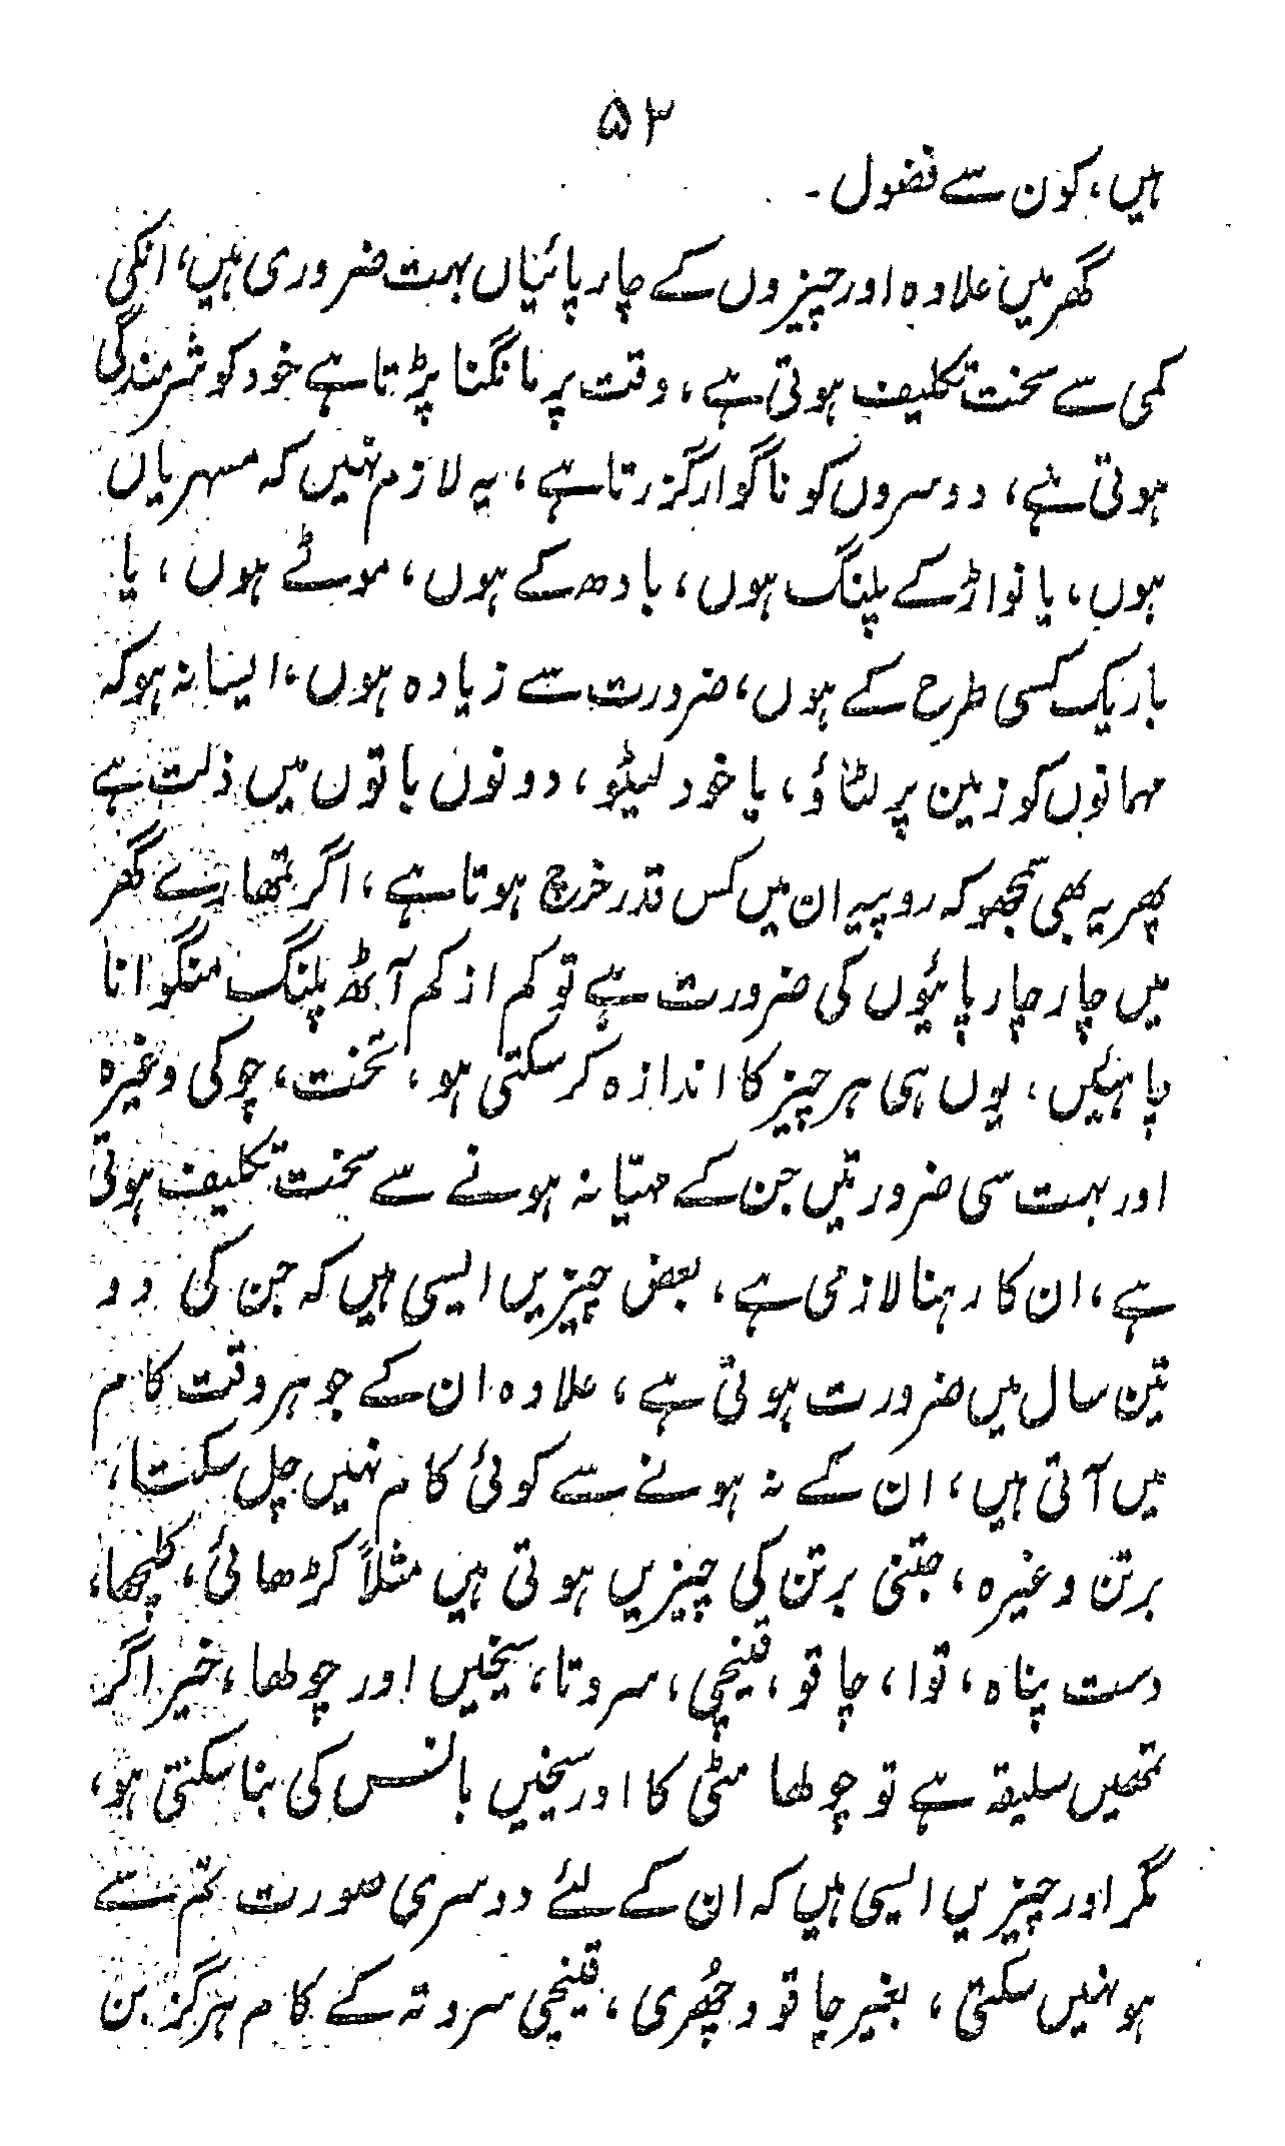 ۵۲
ہیں، کون سے فضول۔
گھر میں علاوہ اور چیزوں کے چارپائیاں بہت ضروری ہیں، انکی
کمی سے سخت تکلیف ہوتی ہے، وقت پر مانگنا پڑتا ہے خود کو شرمندگی
ہوتی ہے، دوسروں کو ناگوار گزرتا ہے، یہ لازم نہیں کہ مسہریاں
ہوں، یا نواڑ کے پلنگ ہوں، بادھ کے ہوں، موٹے ہوں، یا
باریک کسی طرح کے ہوں، ضرورت سے زیادہ ہوں، ایسا نہ ہو کہ
مہمانوں کو زمین پر لٹاؤ، یا خود لیٹو، دونوں باتوں میں ذلت ہے
پھر یہ بھی سمجھو کہ روپیہ ان میں کس قدر خرچ ہوتا ہے، اگر تمھارے گھر
میں چار چارپائیوں کی ضرورت ہے تو کم از کم آٹھ پلنگ منگوانا
چاہئیں، یوں ہی ہر چیز کا اندازہ کر سکتی ہو، تخت، چوکی وغیرہ
اور بہت سی ضرورتیں جن کے مہیّا نہ ہونے سے سخت تکلیف ہوتی
ہے، ان کا رہنا لازمی ہے، بعض چیزیں ایسی ہیں کہ جن کی دو
تین سال میں ضرورت ہوتی ہے، علاوہ ان کے جو ہر وقت کام
میں آتی ہیں، ان کے نہ ہونے سے کوئی کام نہیں چل سکتا،
برتن وغیرہ، جتنی برتن کی چیزیں ہوتی ہیں مثلاً کڑھائی، کلچھا،
دست پناہ، توا، چاقو، قینچی، سروتا، سیخیں اور چولھا، خیر اگر
تمھیں سلیقہ ہے تو چولھا مٹی کا اور سیخیں بانس کی بنا سکتی ہو،
مگر اور چیزیں ایسی ہیں کہ ان کے لئے دوسری صورت تم سے
ہو نہیں سکتی، بغیر چاقو و چُھری، قینچی سروتہ کے کام ہرگز بن